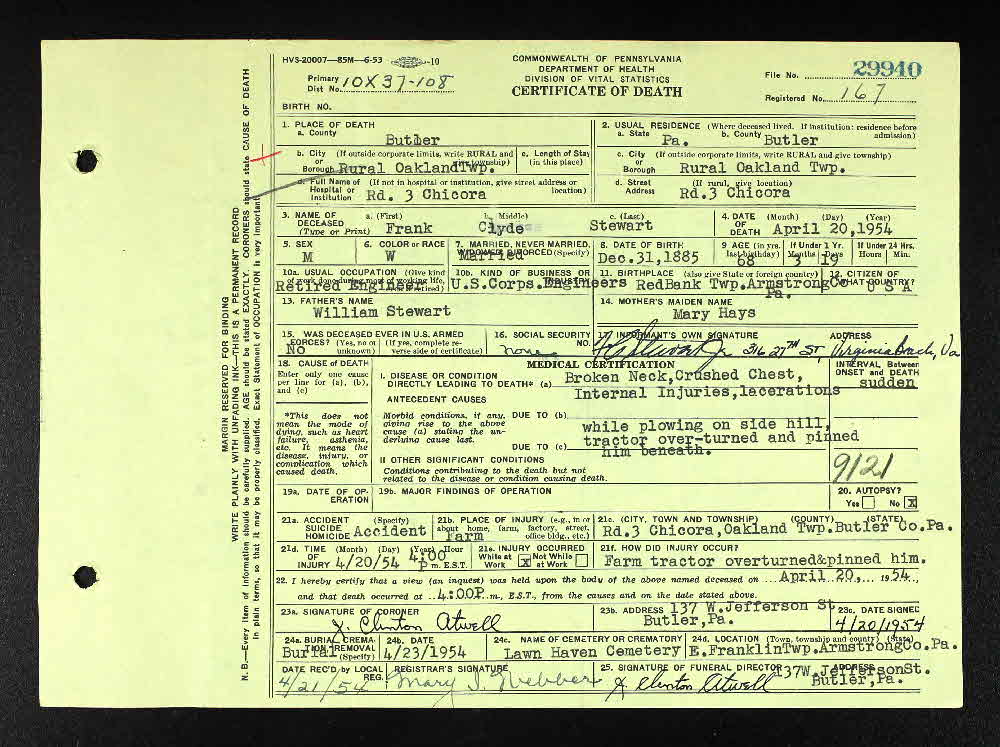 HVS-20007—85M—6-53 -10
COMMONWEALTH OF PENNSYLVANIA
DEPARTMENT OF HEALTH
DIVISION OF VITAL STATISTICS
CERTIFICATE OF DEATH
Primary Dist No. 10X37-108
File No. 29940
Registered No. 167
BIRTH NO.
1. PLACE OF DEATH
a. County Butler
2. USUAL RESIDENCE (Where deceased lived. If institution: residence before admission)
a. State Pa. b. County Butler
b. City or Borough (If outside corporate limits, write RURAL and give township) Rural Oakland Twp.
c. Length of Stay (in this place)
c. City or Borough (If outside corporate limits, write RURAL and give township) Rural Oakland Twp.
d. Full Name of Hospital or Institution (If not in hospital or institution, give street address or location) Rd. 3 Chicora
d. Street Address (If rural, give location) Rd.3 Chicora
3. NAME OF DECEASED (Type or Print) a. (First) Frank b. (Middle) Clyde c. (Last) Stewart
4. DATE OF DEATH (Month) (Day) (Year) April 20,1954
5. SEX M
6. COLOR or RACE W
7. MARRIED, NEVER MARRIED, WIDOWED, DIVORCED (Specify) Married
8. DATE OF BIRTH Dec.31,1885
9 AGE (in yrs. last birthday) 68 If Under 1 Yr. Months 3 Days 19 If Under 24 Hrs. Hours Min.
10a. USUAL OCCUPATION (Give kind of work done during most of working life, even if retired) Retired Engineer
10b. KIND OF BUSINESS OR INDUSTRY U.S.Corps.Engineers
11. BIRTHPLACE (also give State or foreign country) RedBank Twp.Armstrong Co Pa.
12. CITIZEN OF WHAT COUNTRY? U S A
13. FATHER'S NAME
William Stewart
14. MOTHER'S MAIDEN NAME
Mary Hays
15. WAS DECEASED EVER IN U.S. ARMED FORCES? (Yes, no or unknown) (If yes, complete reverse side of certificate) No
16. SOCIAL SECURITY NO. none
17. INFORMANT'S OWN SIGNATURE ADDRESS
316 27TH ST, Virginia Beach, Va
18. CAUSE OF DEATH
Enter only one cause per line for (a), (b), and (c)
MEDICAL CERTIFICATION
INTERVAL Between ONSET and DEATH
sudden
I. DISEASE OR CONDITION DIRECTLY LEADING TO DEATH* (a) Broken Neck,Crushed Chest,
Internal Injuries,lacerations
ANTECEDENT CAUSES
*This does not mean the mode of dying, such as heart failure, asthenia, etc. It means the disease, injury, or complication which caused death.
Morbid conditions, if any, giving rise to the above cause (a) stating the underlying cause last.
DUE TO (b)
while plowing on side hill,
tractor over-turned and pinned
DUE TO (c) him beneath.
II OTHER SIGNIFICANT CONDITIONS
Conditions contributing to the death but not related to the disease or condition causing death.
9121
19a. DATE OF OPERATION
19b. MAJOR FINDINGS OF OPERATION
20. AUTOPSY?
Yes No X
21a. ACCIDENT SUICIDE HOMICIDE (Specify) Accident
21b. PLACE OF INJURY (e.g., in or about home, farm, factory, street, office bldg., etc.) Farm
21c. (CITY, TOWN AND TOWNSHIP) (COUNTY) (STATE)
Rd.3 Chicora,Oakland Twp.Butler Co.Pa.
21d. TIME OF INJURY (Month) (Day) (Year) Hour 4/20/54 4:00 P m. E.S.T.
21e. INJURY OCCURRED While at Work X Not While at Work
21f. HOW DID INJURY OCCUR?
Farm tractor overturned&pinned him.
22. I hereby certify that a view (an inquest) was held upon the body of the above named deceased on April 20, 1954,
and that death occurred at 4:00P m., E.S.T., from the causes and on the date stated above.
23a. SIGNATURE OF CORONER
J. Clinton Atwell
23b. ADDRESS 137 W.Jefferson St.
Butler,Pa.
23c. DATE SIGNED
4/20/1954
24a. BURIAL, CREMATION, REMOVAL (Specify) Burial
24b. DATE 4/23/1954
24c. NAME OF CEMETERY OR CREMATORY
Lawn Haven Cemetery
24d. LOCATION (Town, township and county) (State)
E.FranklinTwp.ArmstrongCo.Pa.
DATE REC'D by LOCAL REG. 4/21/54
REGISTRAR'S SIGNATURE
Mary J. Webber
25. SIGNATURE OF FUNERAL DIRECTOR ADDRESS
J Clinton Atwell
137W.JeffersonSt.
Butler,Pa.
MARGIN RESERVED FOR BINDING
WRITE PLAINLY WITH UNFADING INK—THIS IS A PERMANENT RECORD
N. B.—Every item of information should be carefully supplied. AGE should be stated EXACTLY. CORONERS should state CAUSE OF DEATH
in plain terms, so that it may be properly classified. Exact Statement of OCCUPATION is very important.